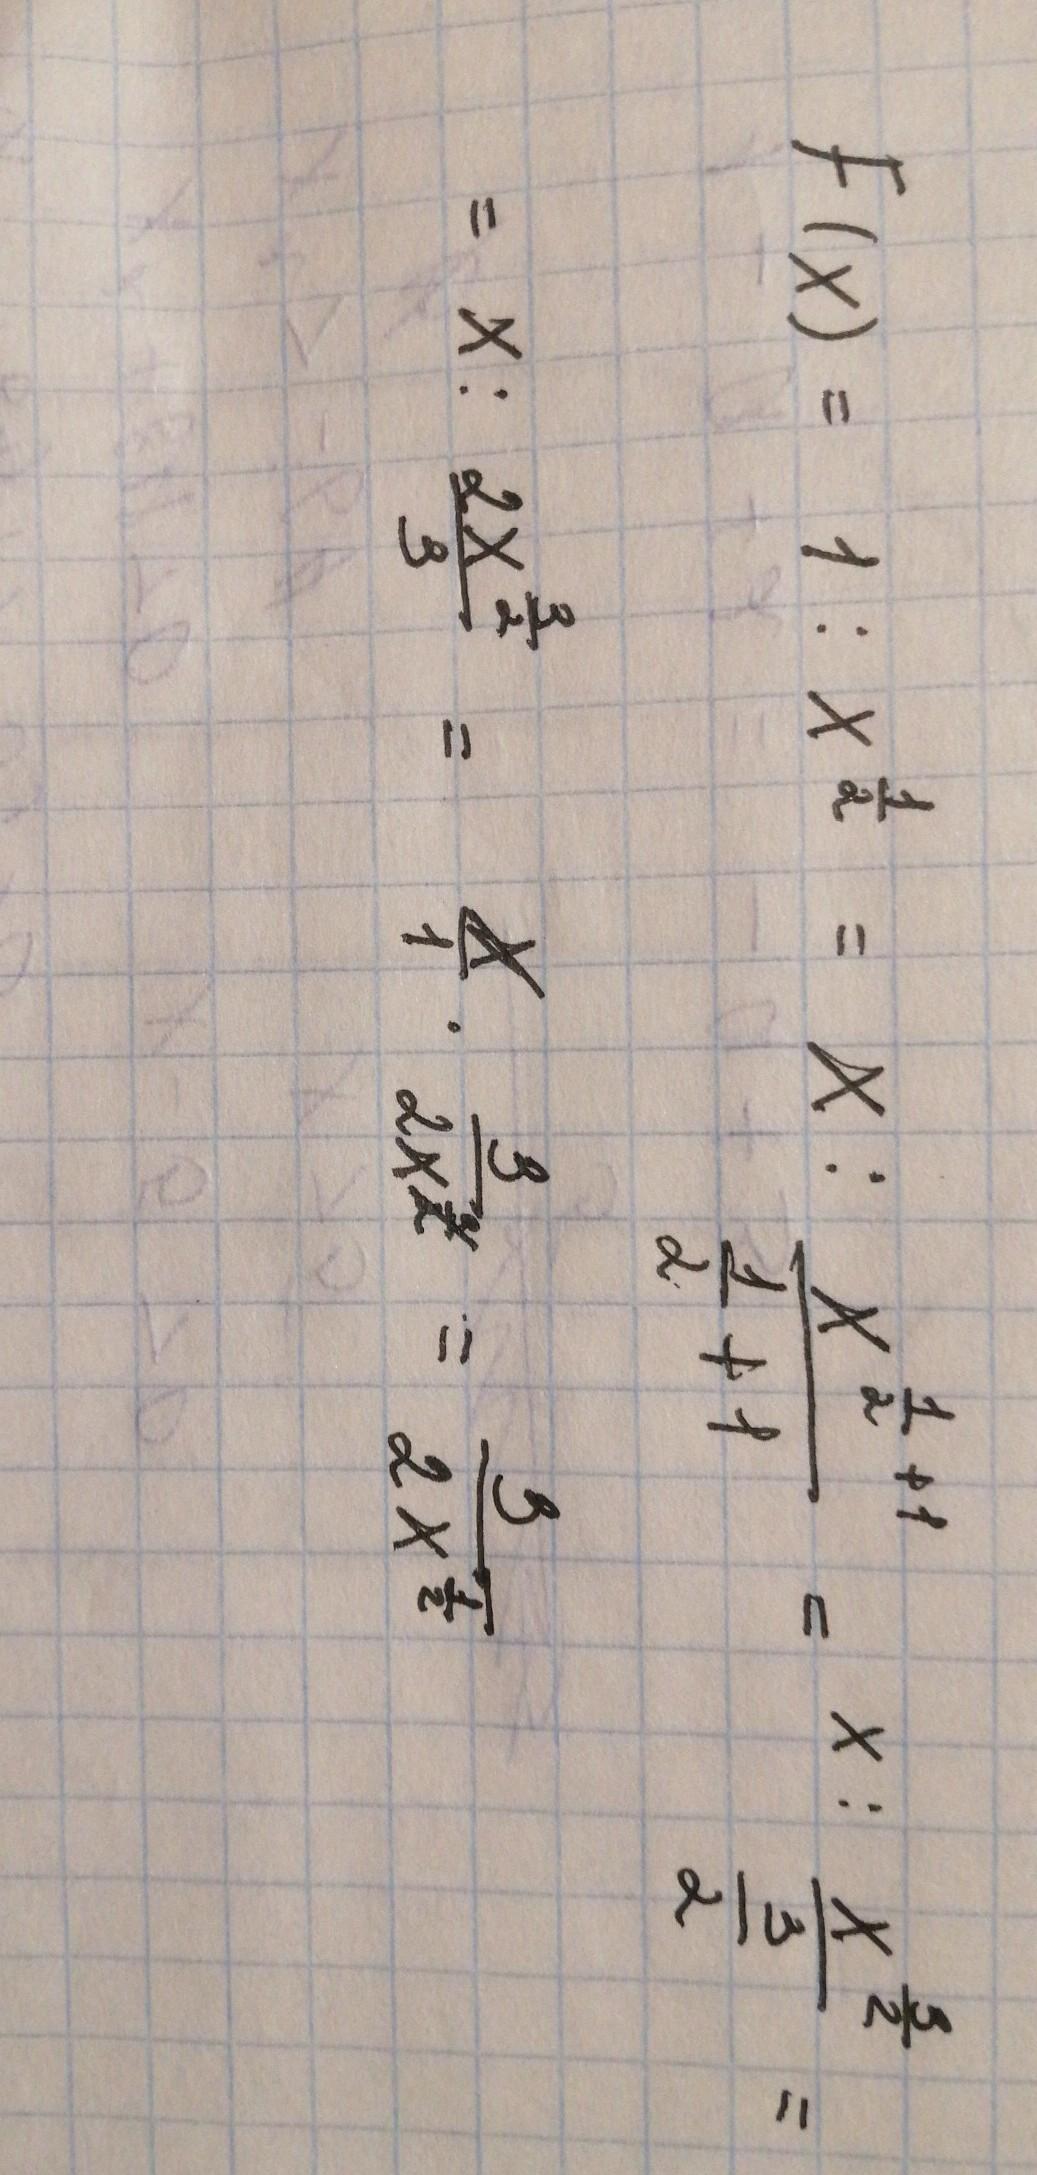 F(x) = 1 : x^{\frac{1}{2}} = x : \frac{x^{\frac{1}{2}+1}}{\frac{1}{2}+1} = x : \frac{x^{\frac{3}{2}}}{\frac{3}{2}} =
= x : \frac{2x^{\frac{3}{2}}}{3} = \frac{x}{1} \cdot \frac{3}{2x^{\frac{3}{2}}} = \frac{3}{2x^{\frac{1}{2}}}